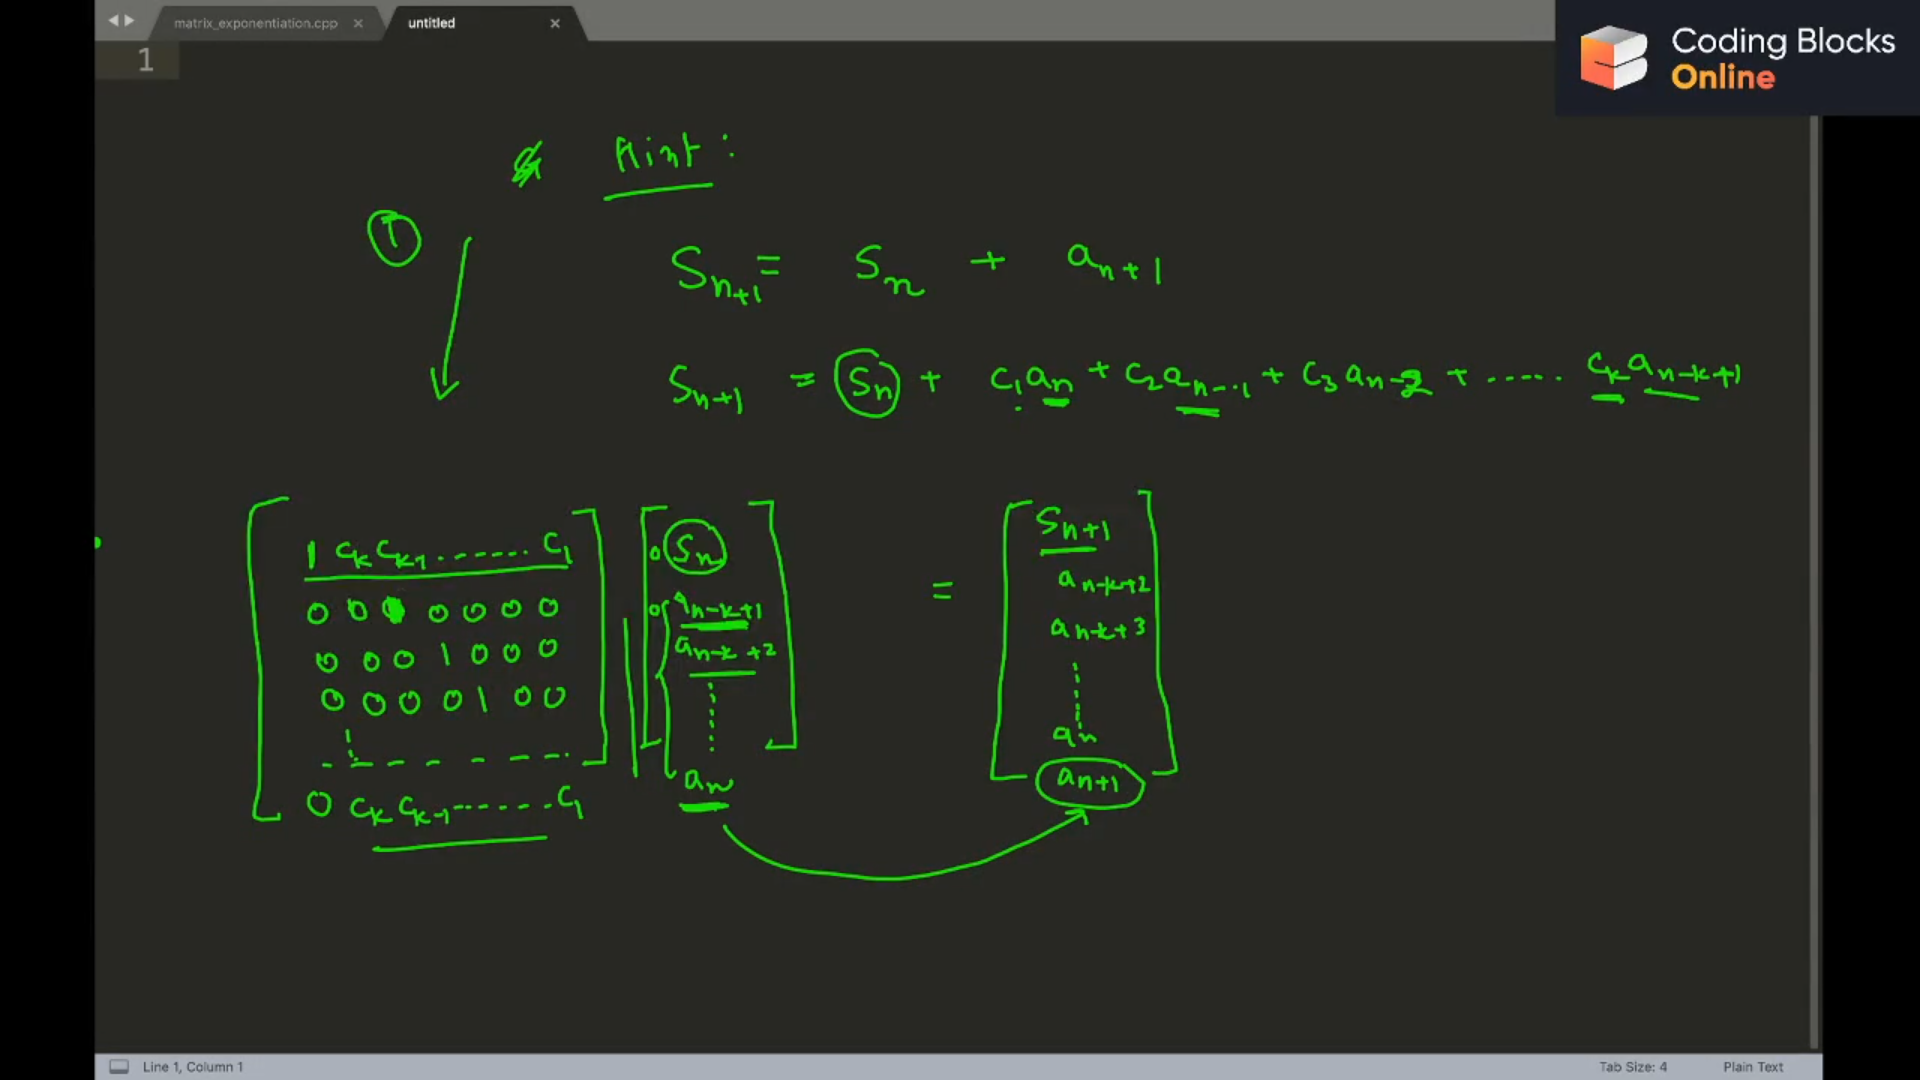 matrix_exponentiation.cpp × untitled ×
Coding Blocks
Online
1
Hint :
1
Sn+1 = Sn + an+1
Sn+1 = Sn + c1an + c2an-1 + c3an-2 + ..... ckan-k+1
1 ck ck-1 ....... c1
0 0 0 0 0 0
0 0 0 1 0 0 0
0 0 0 0 1 0 0
0 ck ck-1 ...... c1
Sn
an-k+1
an-k+2
an
=
Sn+1
an-k+2
an-k+3
an
an+1
Line 1, Column 1 Tab Size: 4 Plain Text